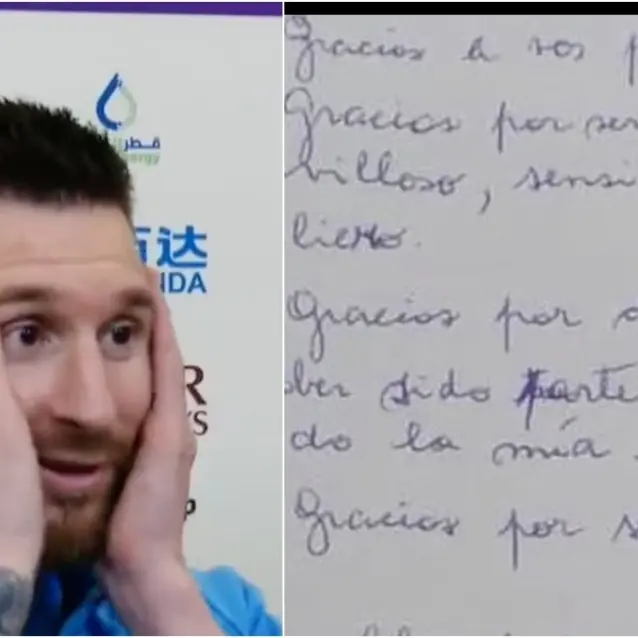 قطر
ergy
万达
NDA
R
YS
P
Gracias a vos p
Gracias por ser
villoso, sensi
lierto.
Gracias por
ber sido parte
do la mía
Gracias por s